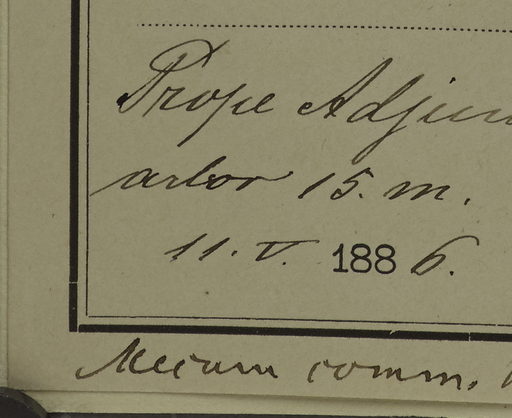 Prope Adjun
arbor 15. m.
11. V. 1886.
Mecum comm.